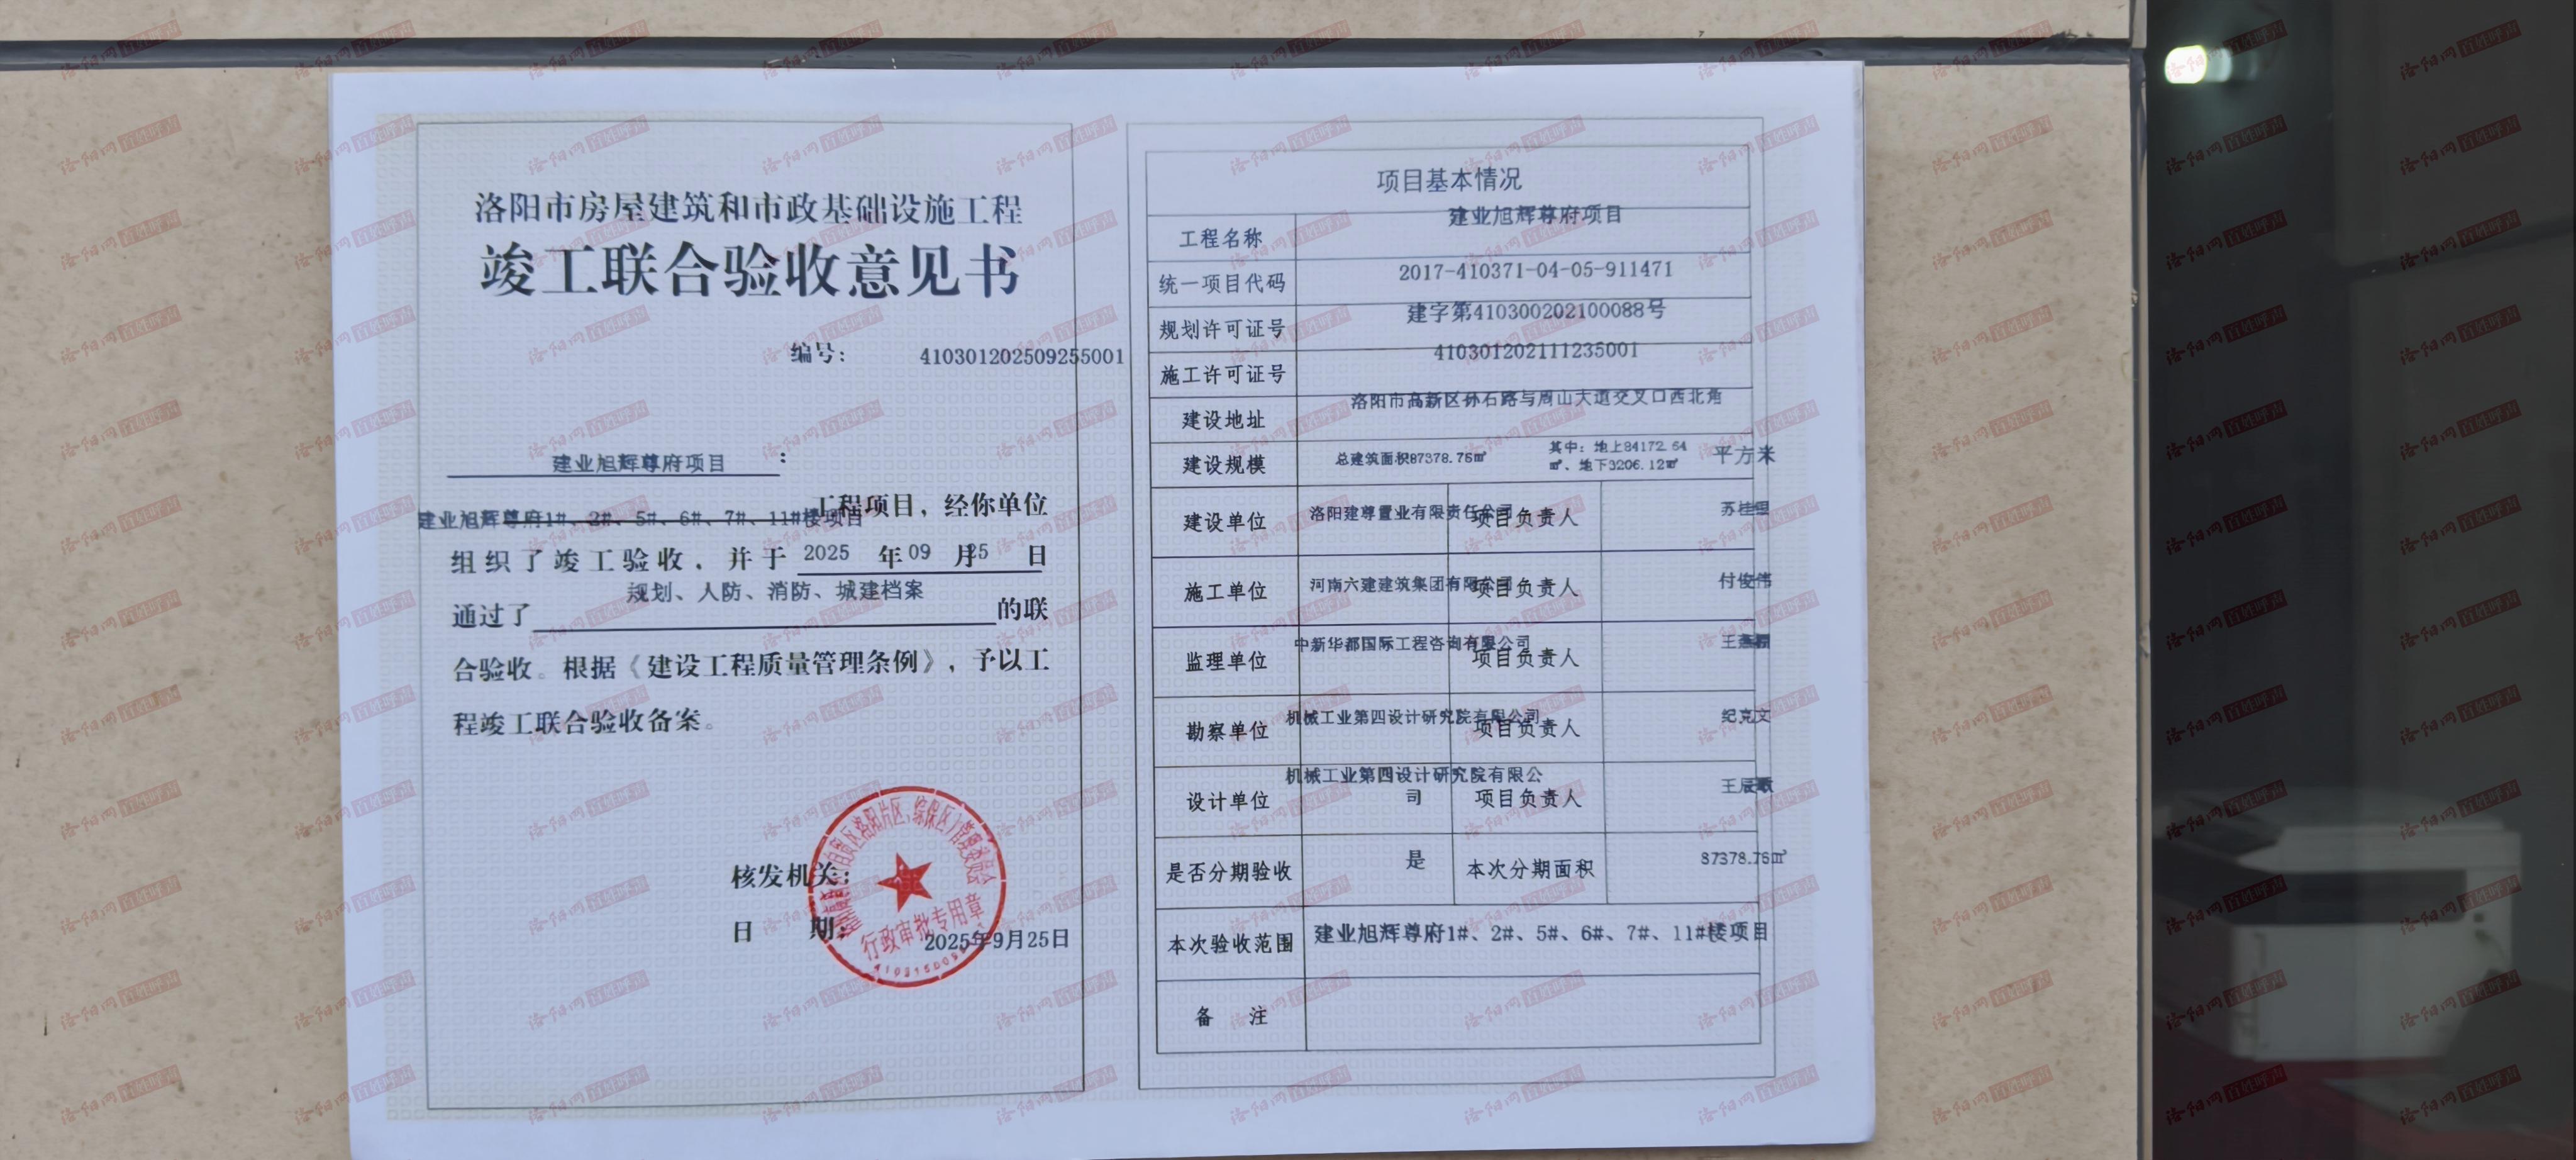 洛阳市房屋建筑和市政基础设施工程
竣工联合验收意见书
编号： 410301202509255001
建业旭辉尊府项目：
建业旭辉尊府1#、2#、5#、6#、7#、11#楼项目 工程项目，经你单位
组织了竣工验收，并于 2025 年 09 月 25 日
通过了 规划、人防、消防、城建档案 的联
合验收。根据《建设工程质量管理条例》，予以工
程竣工联合验收备案。
核发机关：
日 期： 2025年9月25日
行政审批专用章
项目基本情况
工程名称 建业旭辉尊府项目
统一项目代码 2017-410371-04-05-911471
规划许可证号 建字第410300202100088号
施工许可证号 410301202111235001
建设地址 洛阳市高新区孙石路与周山大道交叉口西北角
建设规模 总建筑面积87378.76㎡ 其中：地上84172.64㎡、地下3206.12㎡ 平方米
建设单位 洛阳建尊置业有限责任公司 项目负责人
施工单位 河南六建建筑集团有限公司 项目负责人 付俊伟
监理单位 中新华都国际工程咨询有限公司 项目负责人
勘察单位 机械工业第四设计研究院有限公司 项目负责人 纪克文
设计单位 机械工业第四设计研究院有限公司 项目负责人
是否分期验收 是 本次分期面积 87378.76㎡
本次验收范围 建业旭辉尊府1#、2#、5#、6#、7#、11#楼项目
备 注
洛阳网 百姓呼声